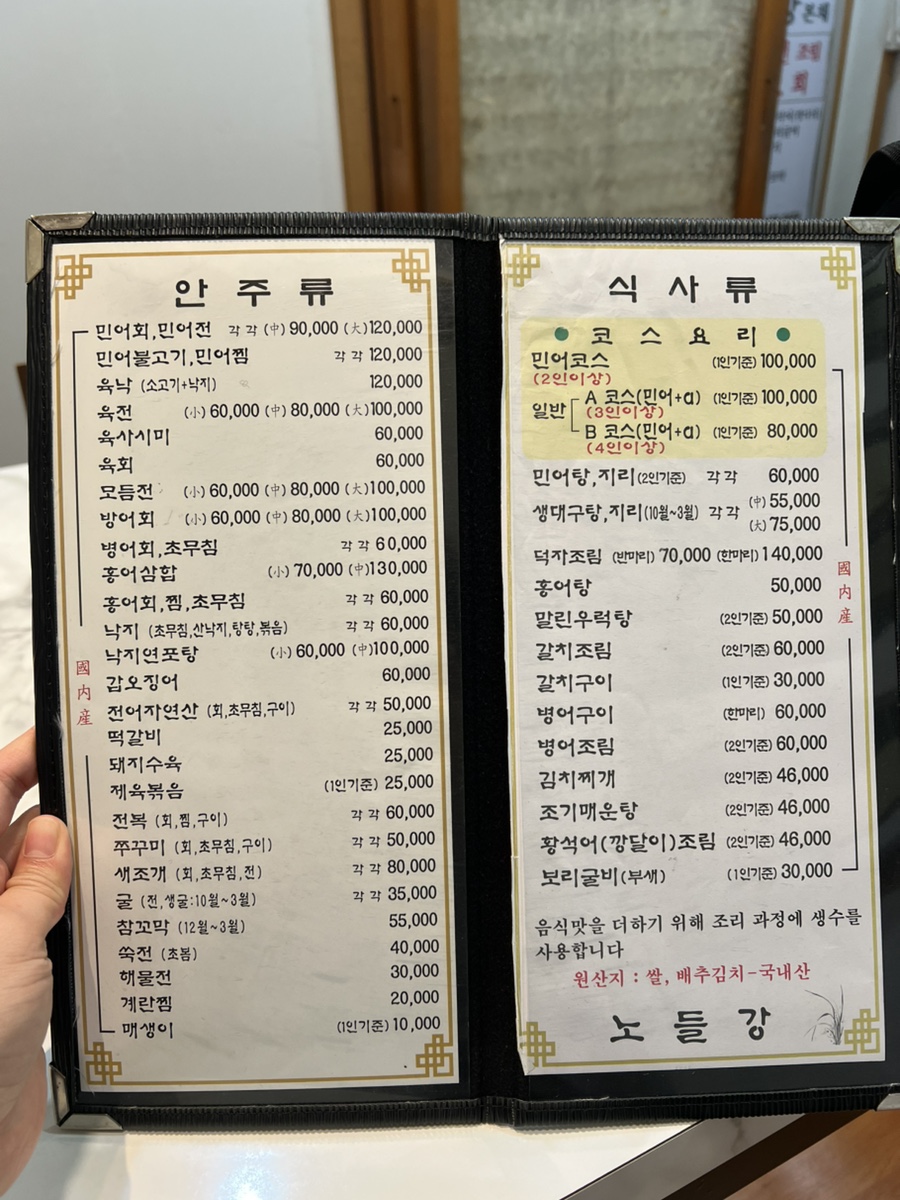 안주류
민어회,민어전 각각 (中) 90,000 (大)120,000
민어불고기,민어찜 각각 120,000
육낙 (소고기+낙지) 120,000
육전 (小) 60,000 (中) 80,000 (大)100,000
육사시미 60,000
육회 60,000
모듬전 (小) 60,000 (中) 80,000 (大)100,000
방어회 (小) 60,000 (中) 80,000 (大)100,000
병어회,초무침 각각 60,000
홍어삼합 (小) 70,000 (中)130,000
홍어회,찜,초무침 각각 60,000
낙지 (초무침,산낙지,탕탕,볶음) 각각 60,000
낙지연포탕 (小) 60,000 (中)100,000
갑오징어 60,000
전어자연산 (회,초무침,구이) 각각 50,000
떡갈비 25,000
돼지수육 25,000
제육볶음 (1인기준) 25,000
전복 (회,찜,구이) 각각 60,000
쭈꾸미 (회,초무침,구이) 각각 50,000
새조개 (회,초무침,전) 각각 80,000
굴 (전,생굴:10월~3월) 각각 35,000
참꼬막 (12월~3월) 55,000
쑥전 (초봄) 40,000
해물전 30,000
계란찜 20,000
매생이 (1인기준) 10,000
國内産
식사류
코스요리
민어코스 (1인기준) 100,000
(2인이상)
일반
A 코스(민어+α) (1인기준) 100,000
(3인이상)
B 코스(민어+α) (1인기준) 80,000
(4인이상)
민어탕,지리(2인기준) 각각 60,000
생대구탕,지리(10월~3월) 각각 (中) 55,000
(大) 75,000
덕자조림 (반마리) 70,000 (한마리) 140,000
홍어탕 50,000
말린우럭탕 (2인기준) 50,000
갈치조림 (2인기준) 60,000
갈치구이 (1인기준) 30,000
병어구이 (한마리) 60,000
병어조림 (2인기준) 60,000
김치찌개 (2인기준) 46,000
조기매운탕 (2인기준) 46,000
황석어(깡달이)조림 (2인기준) 46,000
보리굴비(부새) (1인기준) 30,000
國内産
음식맛을 더하기 위해 조리 과정에 생수를
사용합니다
원산지 : 쌀, 배추김치-국내산
노들강
조림
회